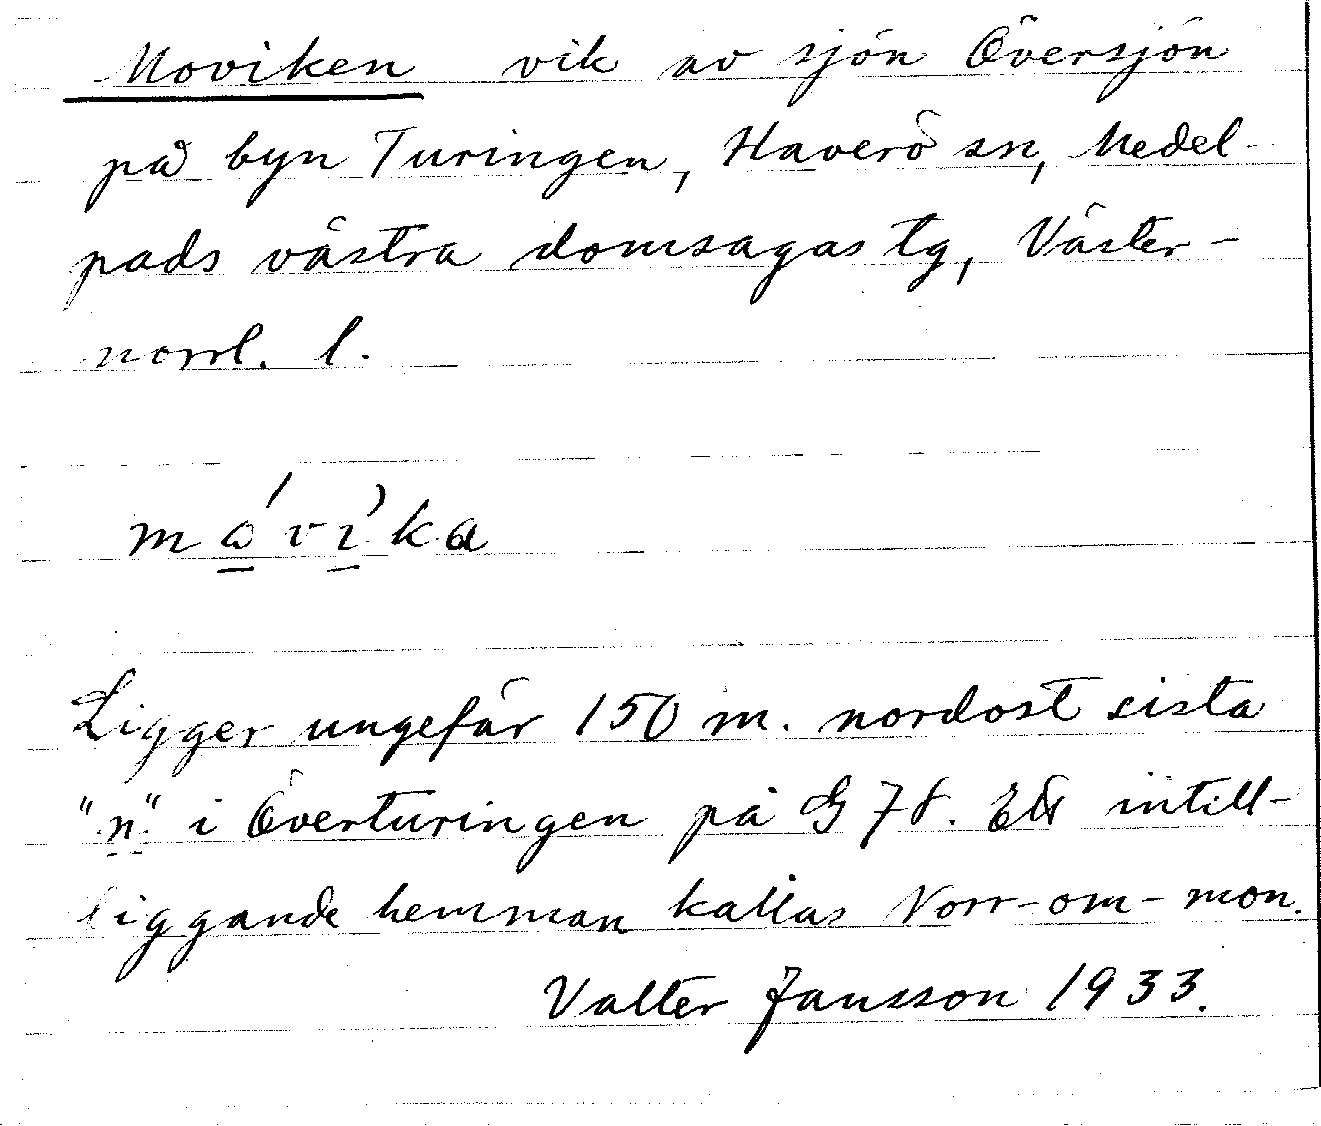 Moviken vik av sjön Översjön
på byn Turingen, Haverö sn, Medel-
pads västra domsagas tg, Väster-
norrl. l.
mǻvı̀ka
Ligger ungefär 150 m. nordost sista
"n" i Överturingen på G 78. Ett intill-
liggande hemman kallas Norr-om-mon.
Valter Jansson 1933.